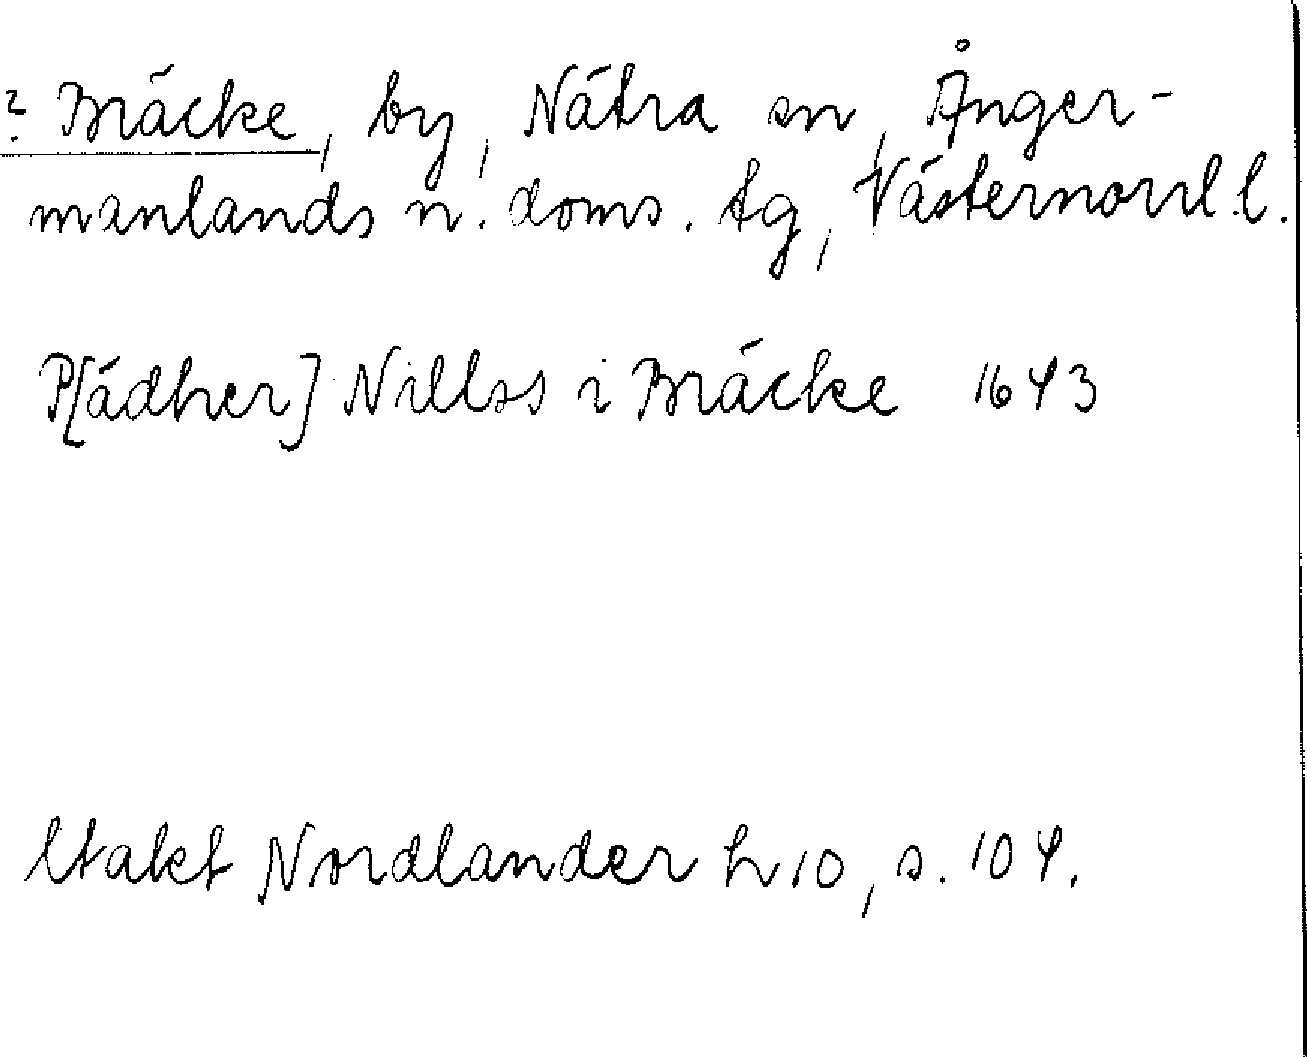 ? Bräcke, by, Nätra sn, Ånger-
manlands n. doms. tg, Västernorrl. l.
P[ädher] Nillss i Bräcke 1643
Utakt Nordlander h 10, s. 104.